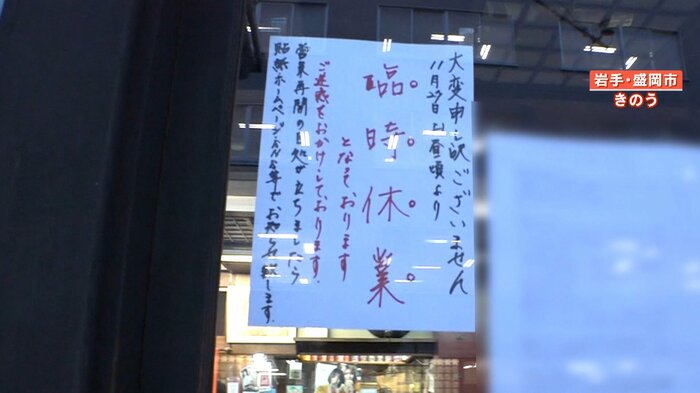 大変申し訳ございません
11月27日土昼頃より
臨。時。休。業。
となっております
ご迷惑をおかけしております。
営業再開の目処が立ちましたら
貼紙ホームページSNS等でお知らせ致します。
岩手・盛岡市
きのう